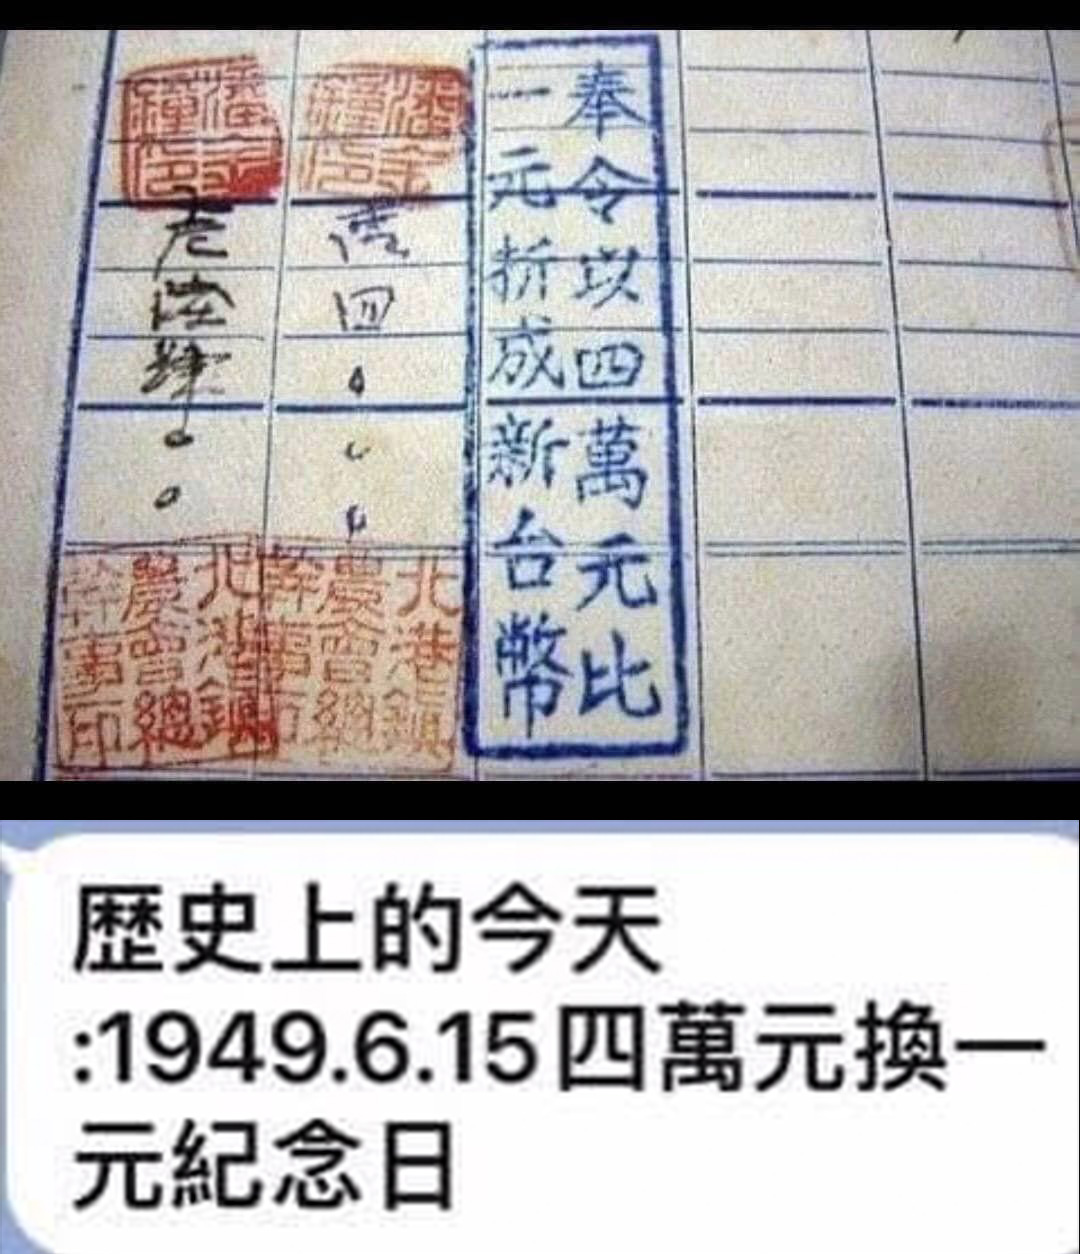 奉令以四萬元比
一元折成新台幣
四
北港鎮
農會總
幹事印
北港鎮
農會總
幹事印
歷史上的今天
:1949.6.15四萬元換一
元紀念日